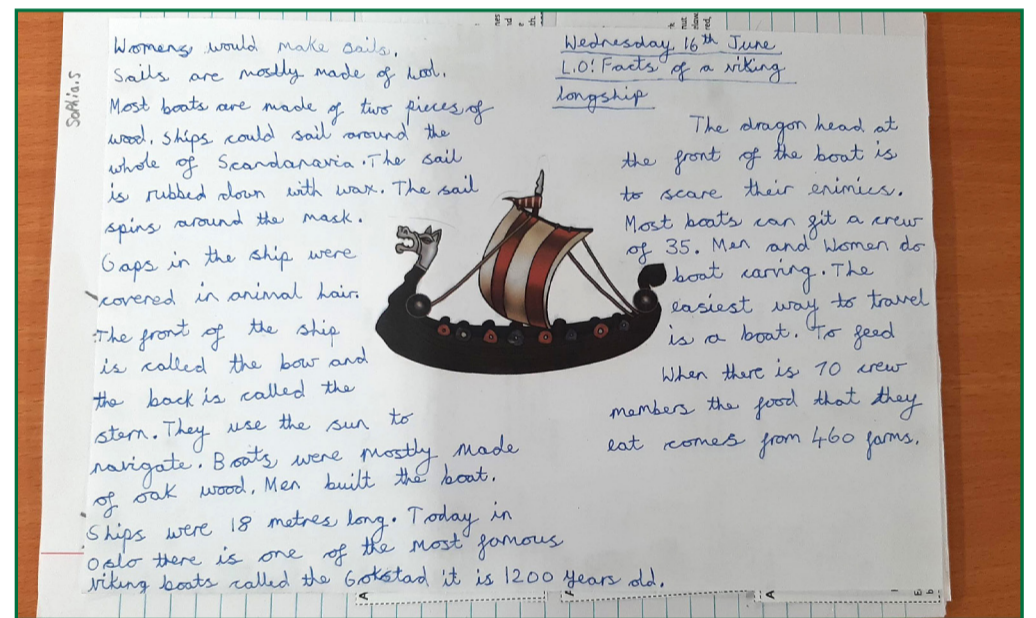 Sophia.S
Womens would make sails.
Sails are mostly made of wol.
Most boats are made of two pieces of
wood. Ships could sail around the
whole of Scandanavia. The sail
is rubbed down with wax. The sail
spins around the mask.
Gaps in the ship were
covered in animal hair.
The front of the ship
is called the bow and
the back is called the
stern. They use the sun to
navigate. Boats were mostly made
of oak wood. Men built the boat.
Ships were 18 metres long. Today in
Oslo there is one of the most famous
viking boats called the Gokstad it is 1200 years old.
Wednesday 16th June
L.O: Facts of a viking
longship
The dragon head at
the front of the boat is
to scare their enimies.
Most boats can git a crew
of 35. Men and Women do
boat carving. The
easiest way to travel
is a boat. To feed
When there is 70 crew
members the food that they
eat comes from 460 farms.